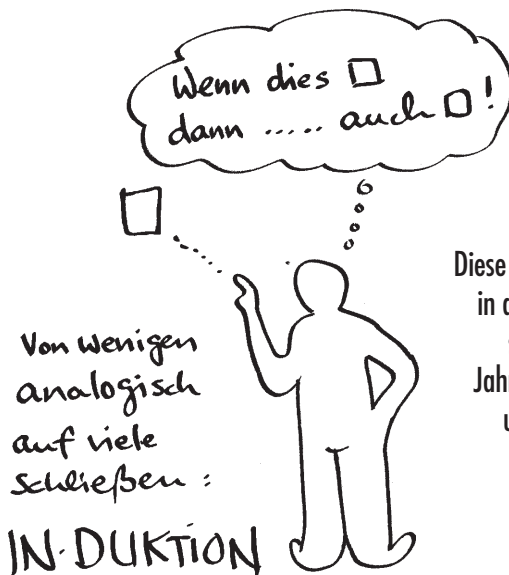 Wenn dies
dann ..... auch !
Von wenigen
analogisch
auf viele
schließen :
IN-DUKTION
Diese
in
Jahr